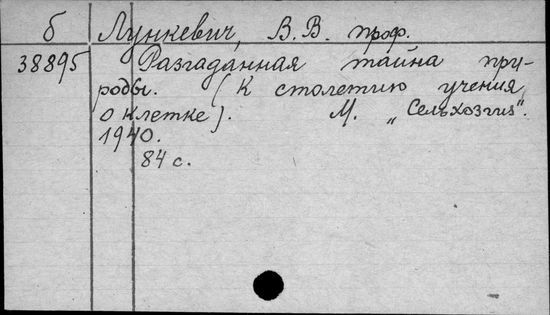 б Лункевич, В.В. проф.
38895 Разгаданная тайна при-
роды. (К столетию учения
о клетке). М. „Сельхозгиз".
1940.
84 с.